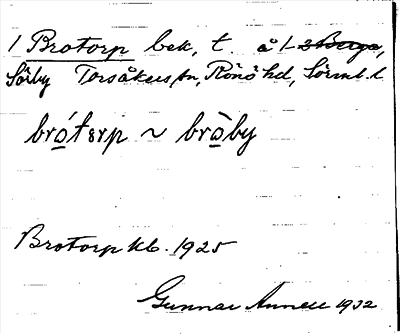 1 Brotorp bek, t. å 1-2 Berga,
Sörby Torsåkers sn, Rönö hd, Sörml. l
brótɛrp ~ bròby
Brotorp kb. 1925
Gunnar Annell 1932